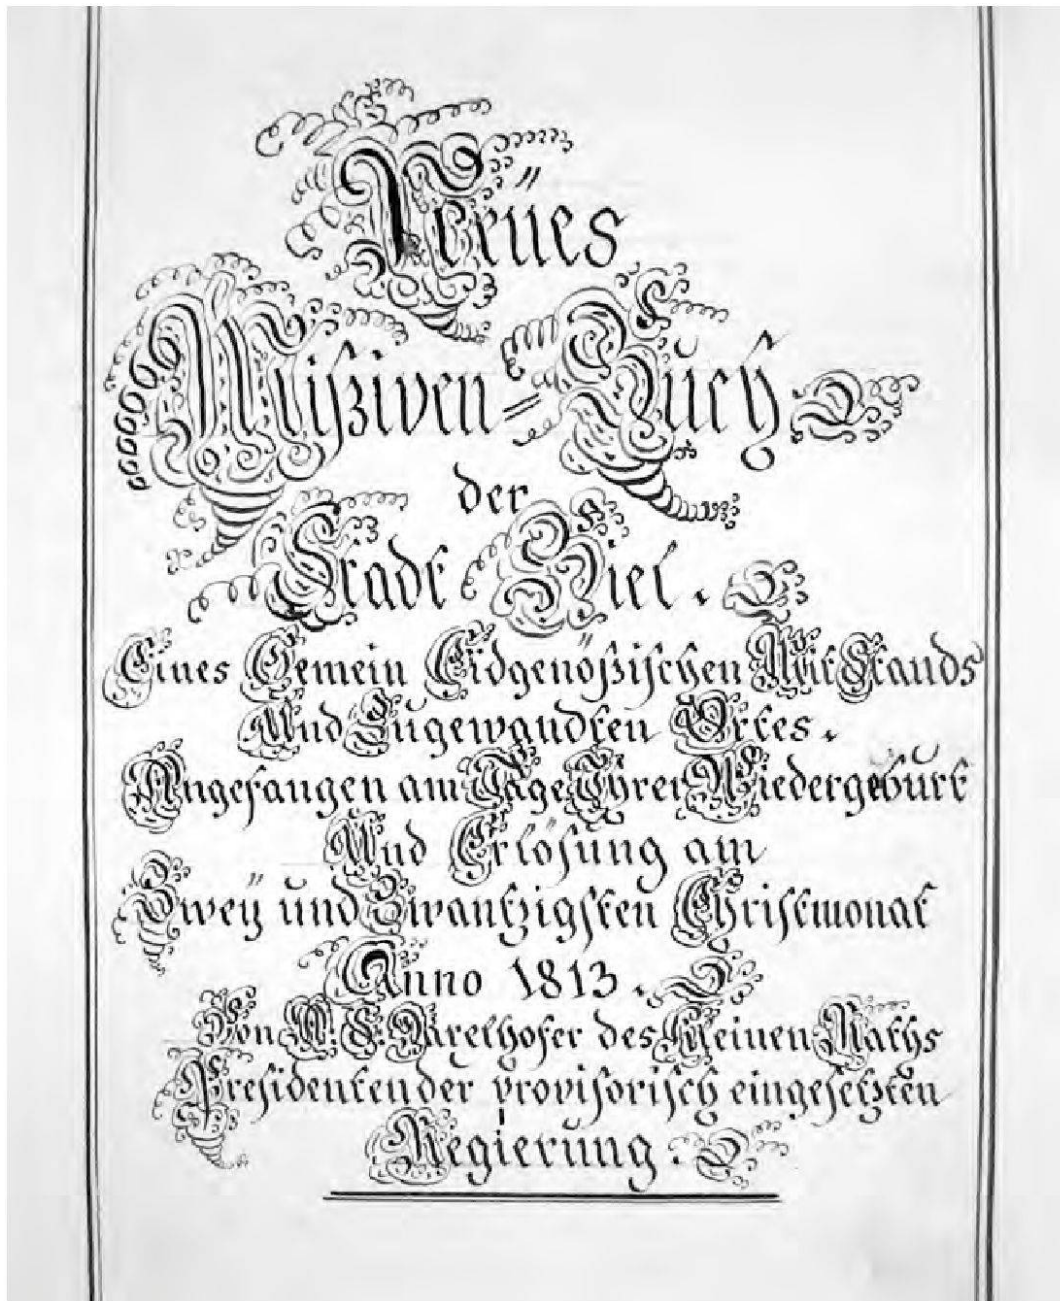 Neües
Mißiven=Buch
der
Stadt Biel.
Eines Gemein Eidgenößischen Mit Stands
Und Zugewandten Ortes.
Angefangen am Tage Ihrer Wiedergeburt
Und Erlösung am
Zweÿ und Zwantzigsten Christmonat
Anno 1813.
Von Daxelhofer des Kleinen Raths
Presidenten der provisorisch eingesetzten
Regierung.